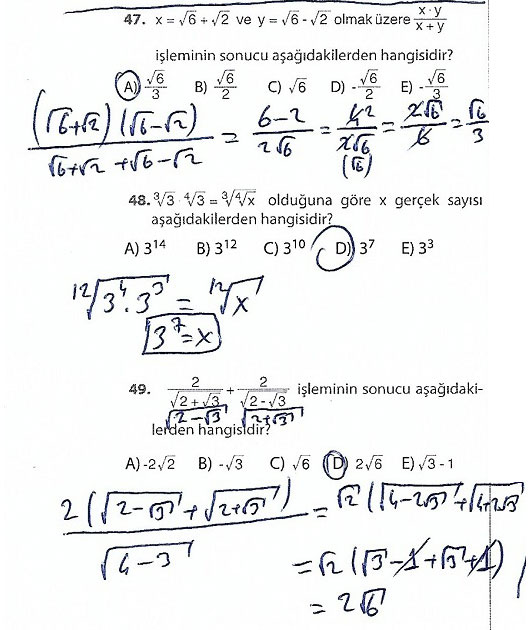 47. x = √6 + √2 ve y = √6 - √2 olmak üzere (x·y)/(x+y)
işleminin sonucu aşağıdakilerden hangisidir?
A) √6/3 B) √6/2 C) √6 D) -√6/2 E) -√6/3
((√6+√2)(√6-√2))/(√6+√2+√6-√2) = (6-2)/(2√6) = 4 2/2√6 (√6) = 2√6/6 = √6/3
48. ³√3 · ⁴√3 = ³√⁴√x olduğuna göre x gerçek sayısı
aşağıdakilerden hangisidir?
A) 3¹⁴ B) 3¹² C) 3¹⁰ D) 3⁷ E) 3³
¹²√(3⁴·3³) = ¹²√x
3⁷ = x
49. 2/√(2+√3) + 2/√(2-√3) işleminin sonucu aşağıdaki-
√(2-√3) √(2+√3)
lerden hangisidir?
A) -2√2 B) -√3 C) √6 D) 2√6 E) √3 - 1
2(√(2-√3) + √(2+√3))/√(4-3) = √2(√(4-2√3) + √(4+2√3)
= √2(√3-1+√3+1)
= 2√6